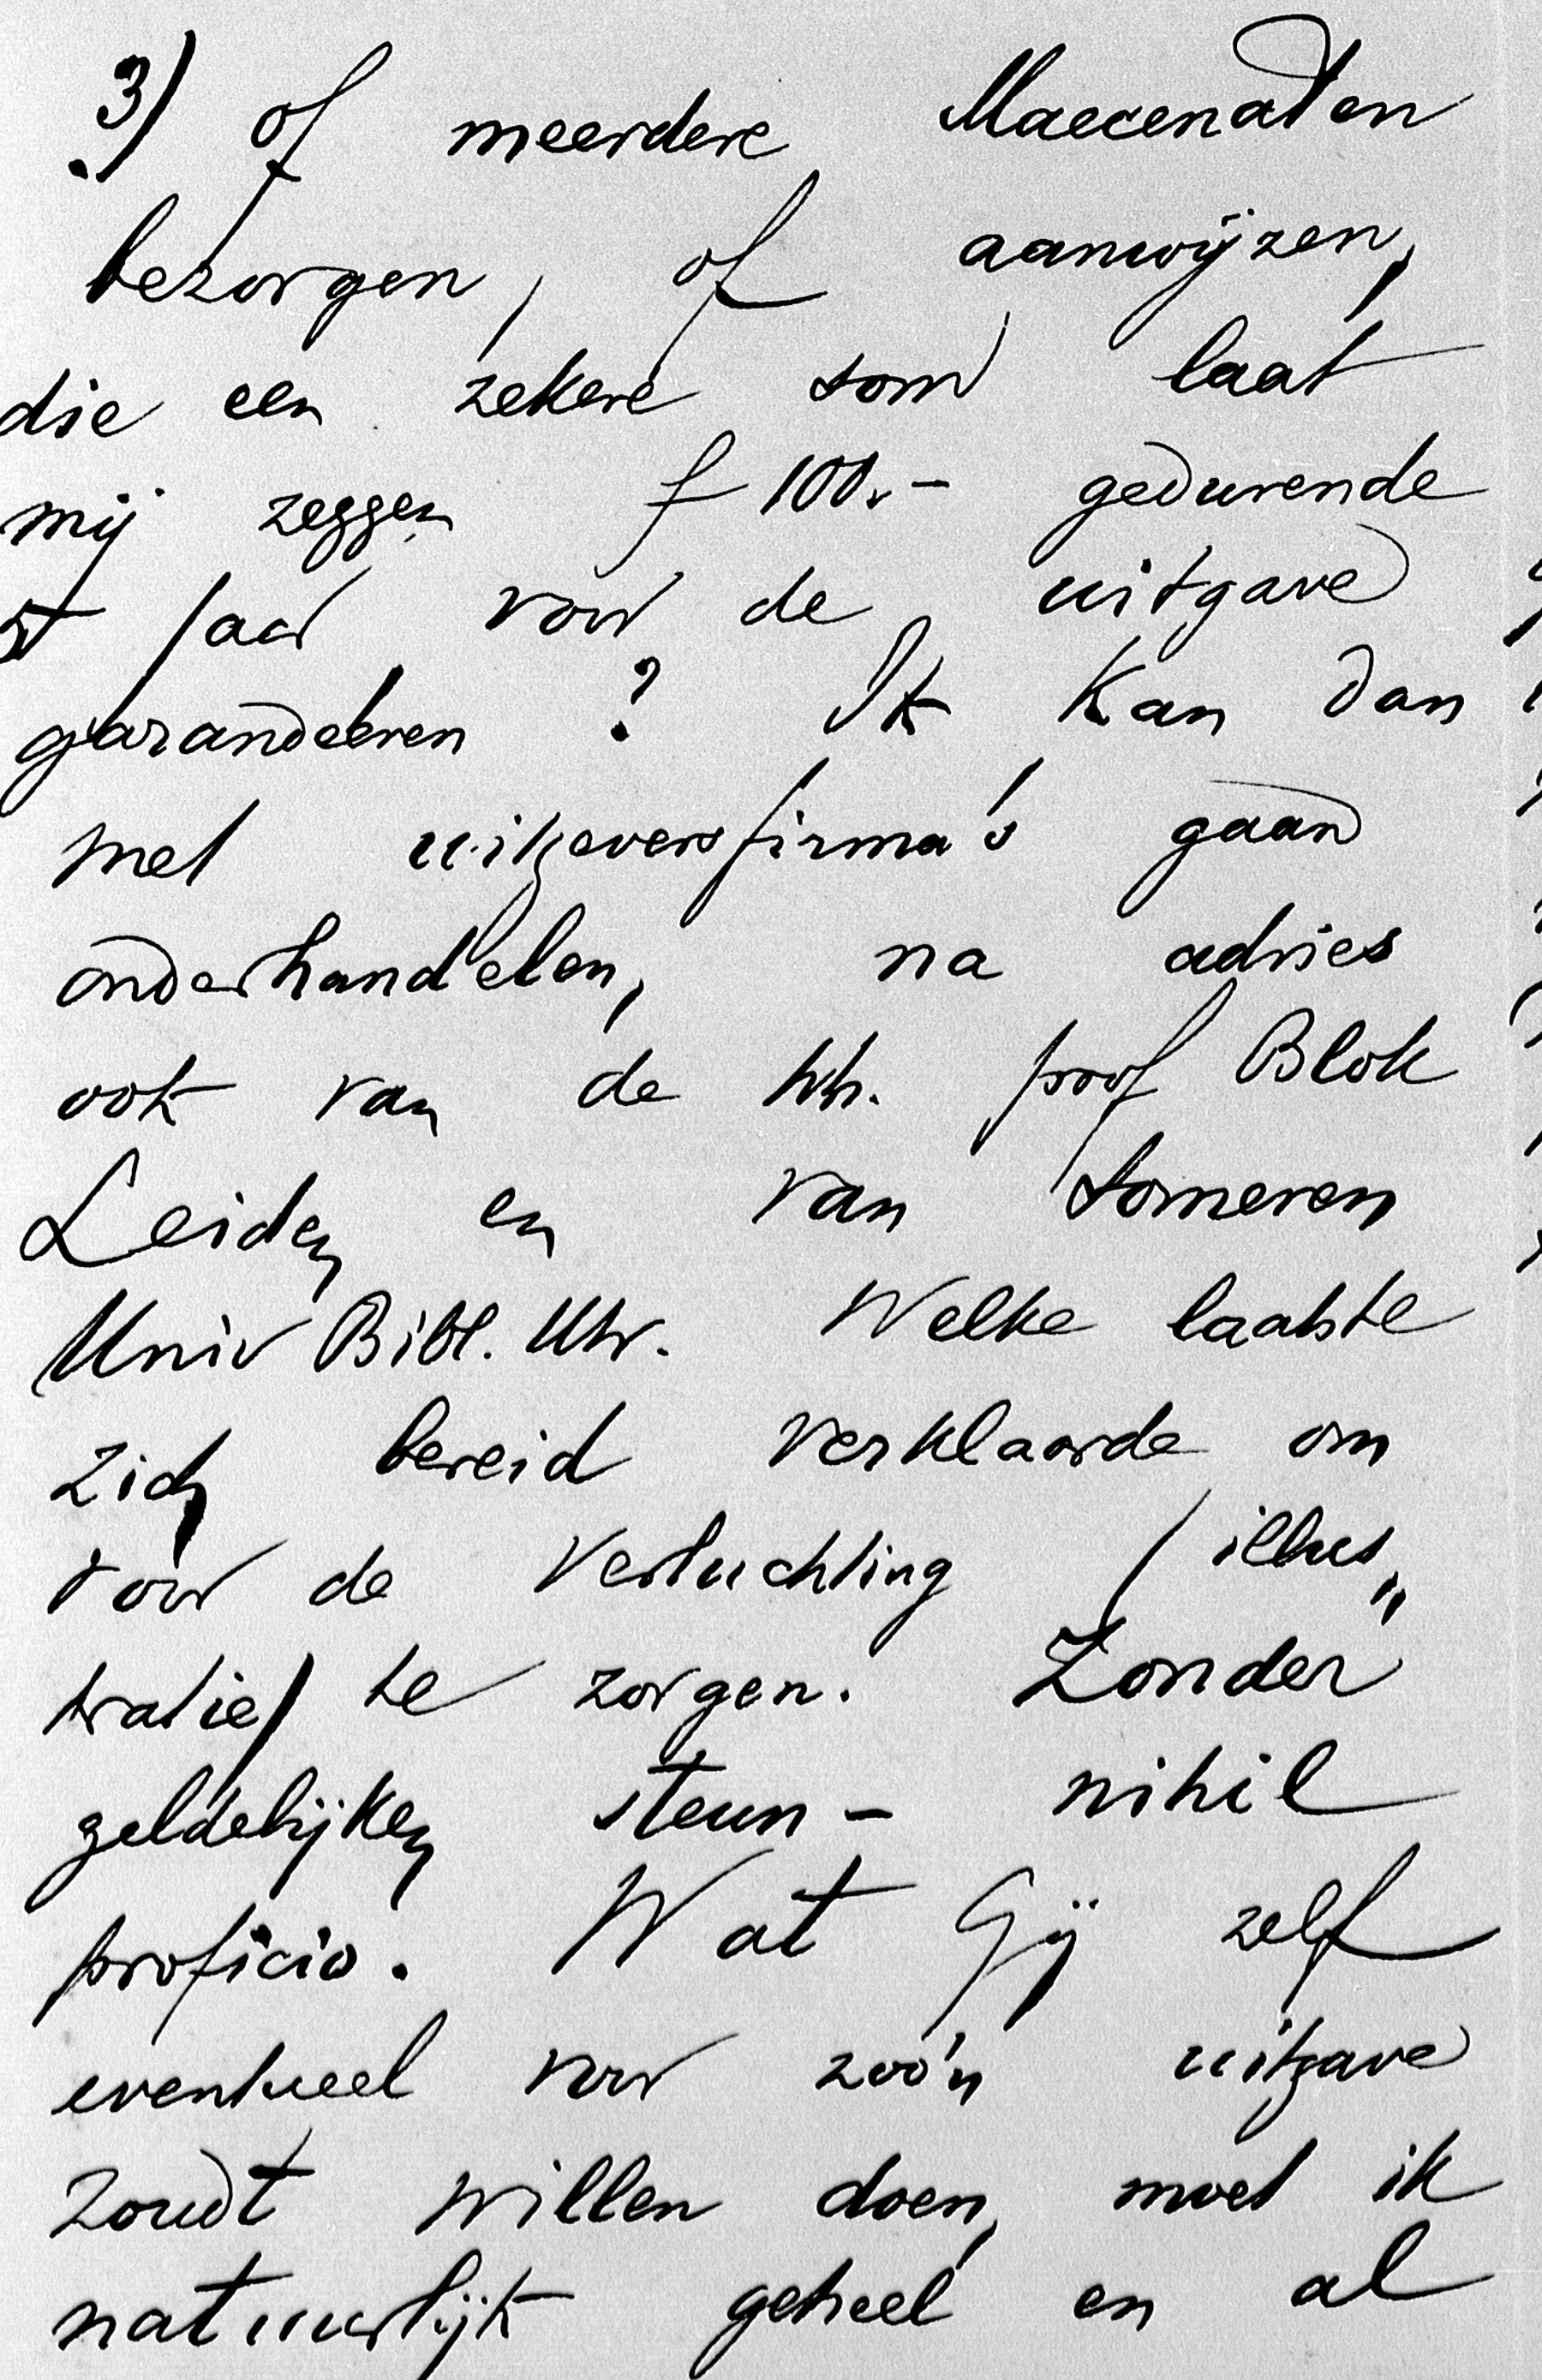 3) of meerdere Maecenaten
bezorgen, of aanwijzen,
die een zekere som laat
mij zeggen f 100.- gedurende
5 jaar voor de uitgave
garandeeren? Ik kan dan
met uitgeversfirma's gaan
onderhandelen, na advies
ook van de hh. prof Blok
Leiden en van Someren
Univ Bibl. Utr. Welke laatste
zich bereid verklaarde om
voor de verluchting (illus„
tratie) te zorgen. Zonder
geldelijken steun - nihil
proficio. Wat Gij zelf
eventueel voor zoo'n uitgave
zoudt willen doen, moet ik
natuurlijk geheel en al